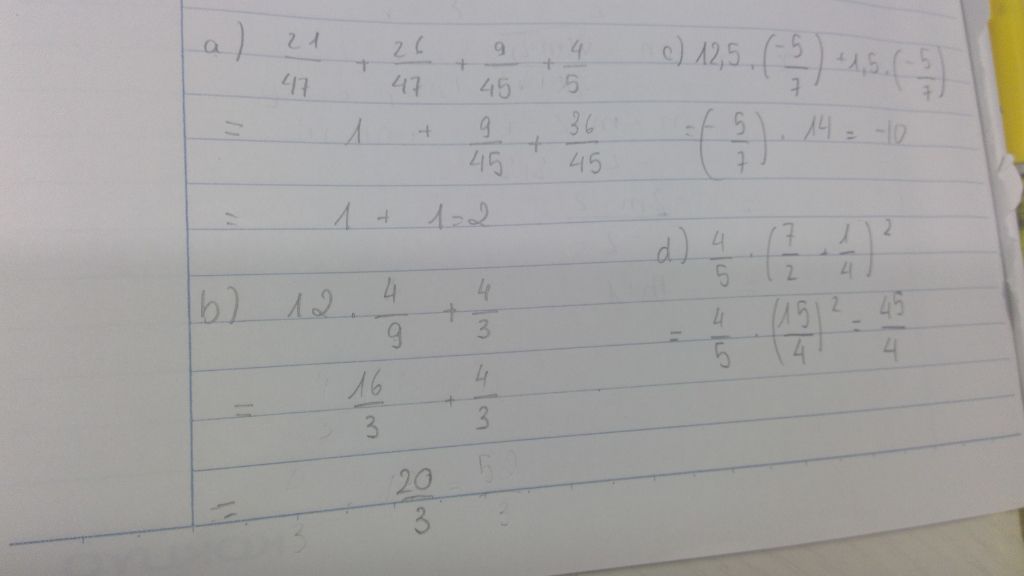 a) 21/47 + 26/47 + 9/45 + 4/5
= 1 + 9/45 + 36/45
= 1 + 1 = 2
b) 12 . 4/9 + 4/3
= 16/3 + 4/3
= 20/3
c) 12,5 . (-5/7) + 1,5 . (-5/7)
= (-5/7) . 14 = -10
d) 4/5 . (7/2 + 1/4)²
= 4/5 . (15/4)² = 45/4